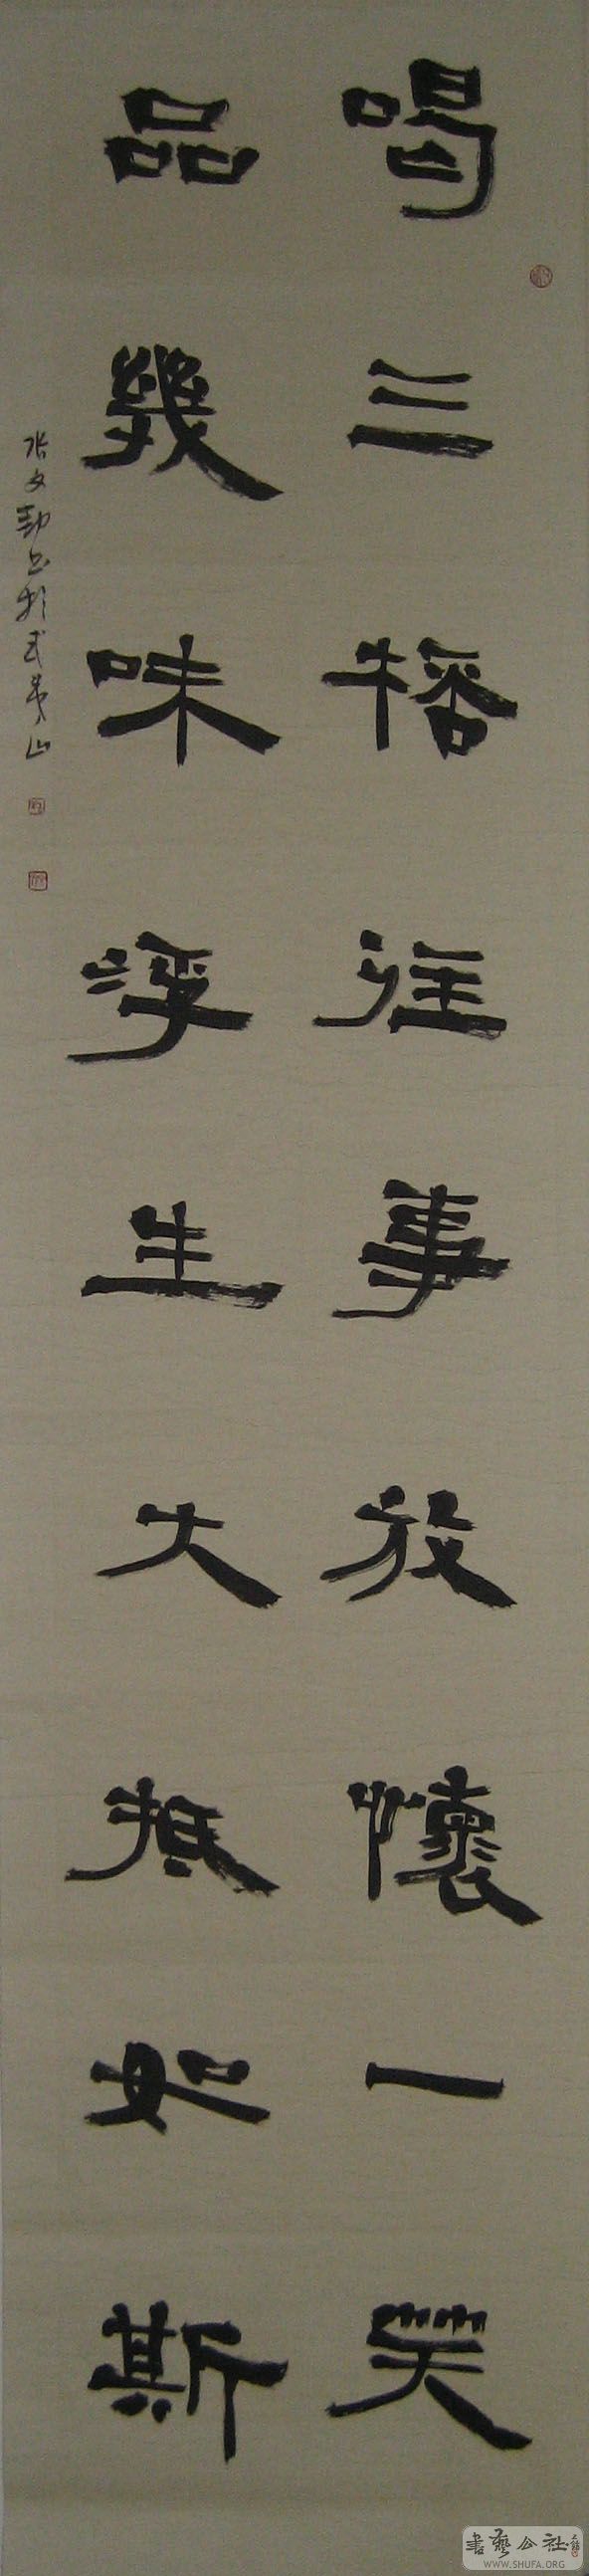 喝三播往事放懷一笑
品幾味浮生大抵如斯
張文勤書於武夷山
書藝公社
WWW.SHUFA.ORG